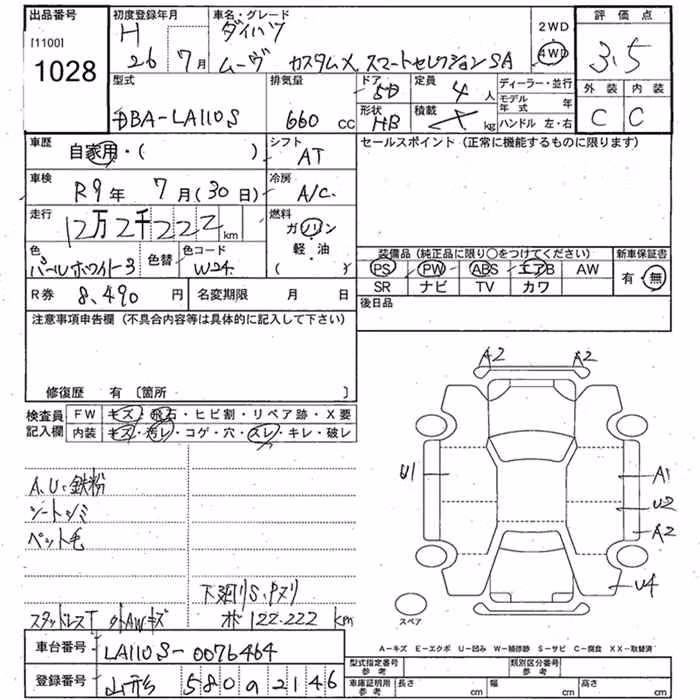 出品番号
[1100]
1028
初度登録年月
H
26 7月
車名・グレード
ダイハツ
ムーヴ カスタムX スマートセレクションSA
2WD
4WD
評価点
3.5
外装 内装
C C
型式
DBA-LA110S
排気量
660 cc
ドア
5D
定員
4人
形状
HB
積載
kg
ディーラー・並行
モデル年式 年
ハンドル 左・右
車歴
自家用・( )
シフト
AT
車検
R9年 7月(30日)
冷房
A/C
走行
12万2千222km
燃料
ガソリン
軽・油
( )
色
パールホワイト3
色替
色コード
W24
R券 8,490 円
名変期限 月 日
セールスポイント (正常に機能するものに限ります)
装備品 (純正品に限り○をつけてください)
新車保証書
PS PW ABS エアB AW
SR ナビ TV カワ
有・無
後日品
注意事項申告欄 (不具合内容等は具体的に記入して下さい)
修復歴 有 〔箇所 〕
検査員記入欄
FW キズ・飛石・ヒビ割・リペア跡・X要
内装 キズ・汚レ・コゲ・穴・スレ・キレ・破レ
A.U.鉄粉
シートシミ
ペット毛
下廻りS.Pヌリ
スタッドレスT 外AWキズ ホ122.222km
A2 A2
U1
A1
U2
A2
U4
スペア
A-キズ E-エクボ U-凹み W-補修跡 S-サビ C-腐食 XX-取替済
車台番号
LA110S-0076464
登録番号
山形 580 a 2146
型式指定番号
参考
類別区分番号
参考
車庫証明用
参考
長さ cm
幅 cm
高さ cm